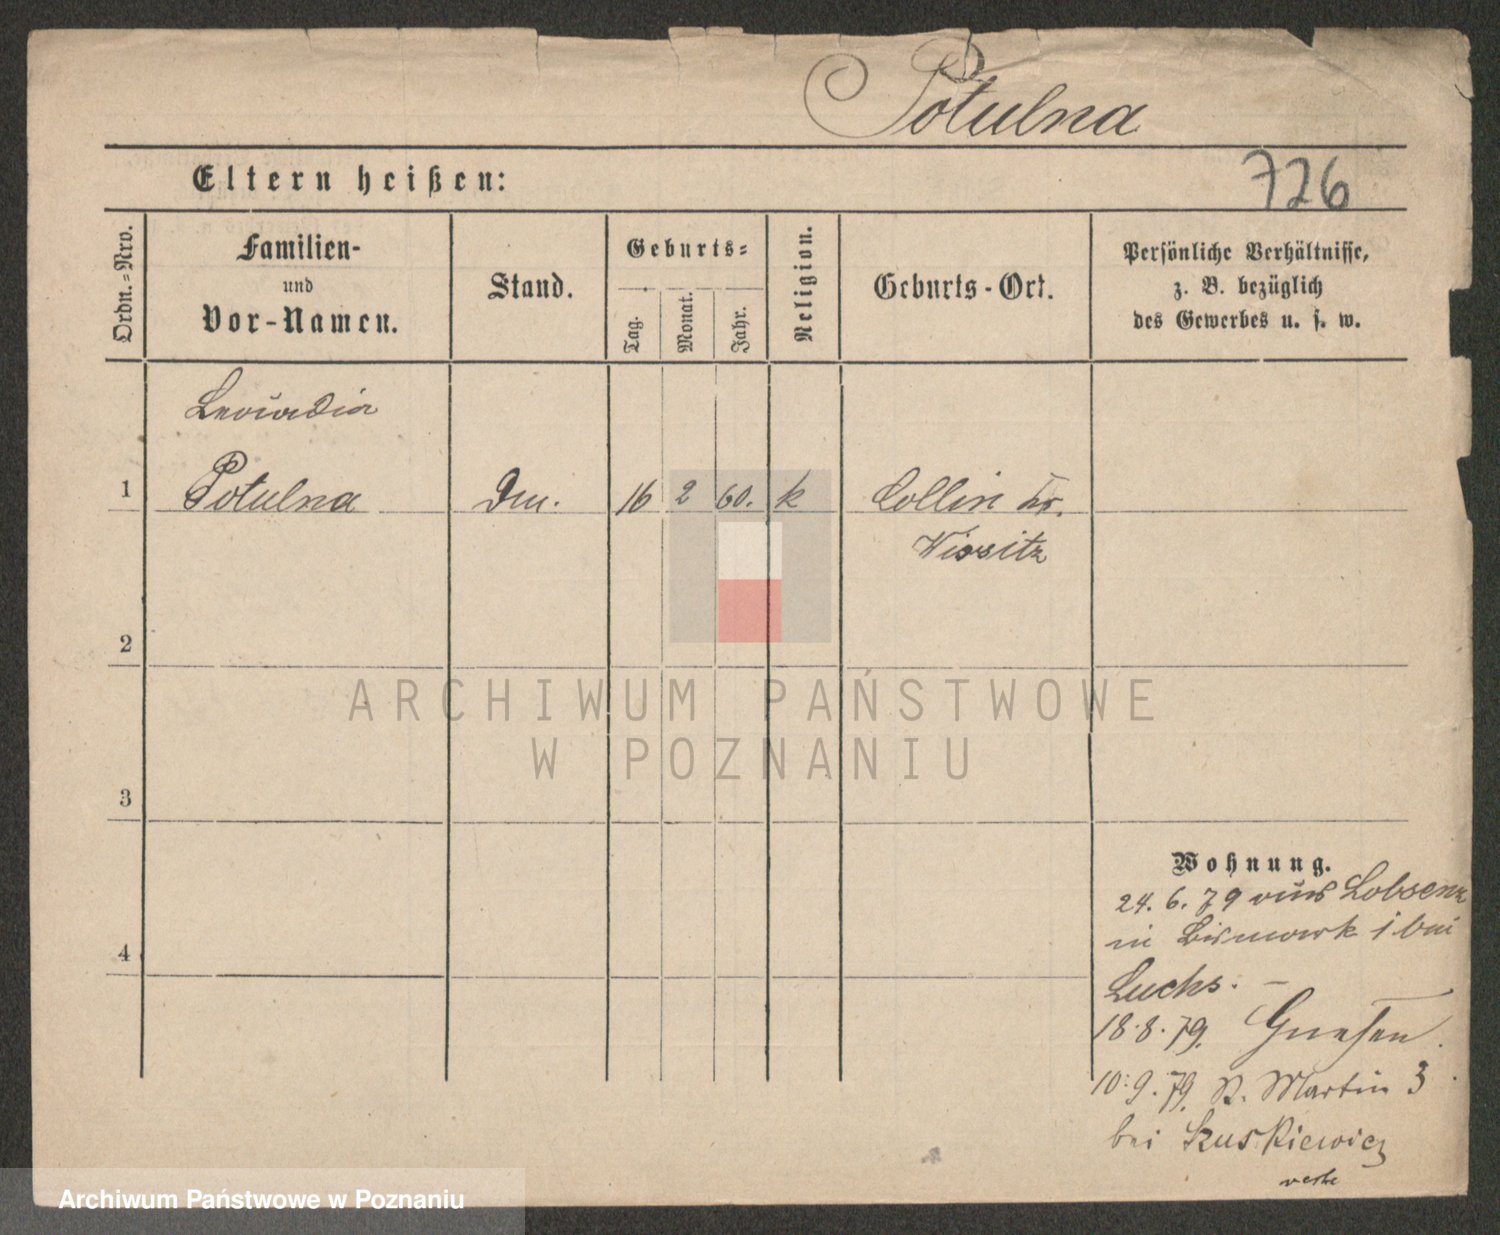 Potulna
726
Eltern heißen:
Ordn.-Nro.
Familien-
und
Vor-Namen.
Stand.
Geburts-
Tag.
Monat.
Jahr.
Religion.
Geburts-Ort.
Persönliche Verhältnisse,
z. B. bezüglich
des Gewerbes u. s. w.
1
Potulna
16 2 60. k
Collin Kr.
Wissitz
2
3
4
Wohnung.
24. 6. 79 aus Lobsenz
in Bismark 1 bei
Luchs. –
18. 8. 79. Gnesen.
10. 9. 79. St. Martin 3
bei Szuskiewicz
ARCHIWUM PAŃSTWOWE
W POZNANIU
Archiwum Państwowe w Poznaniu